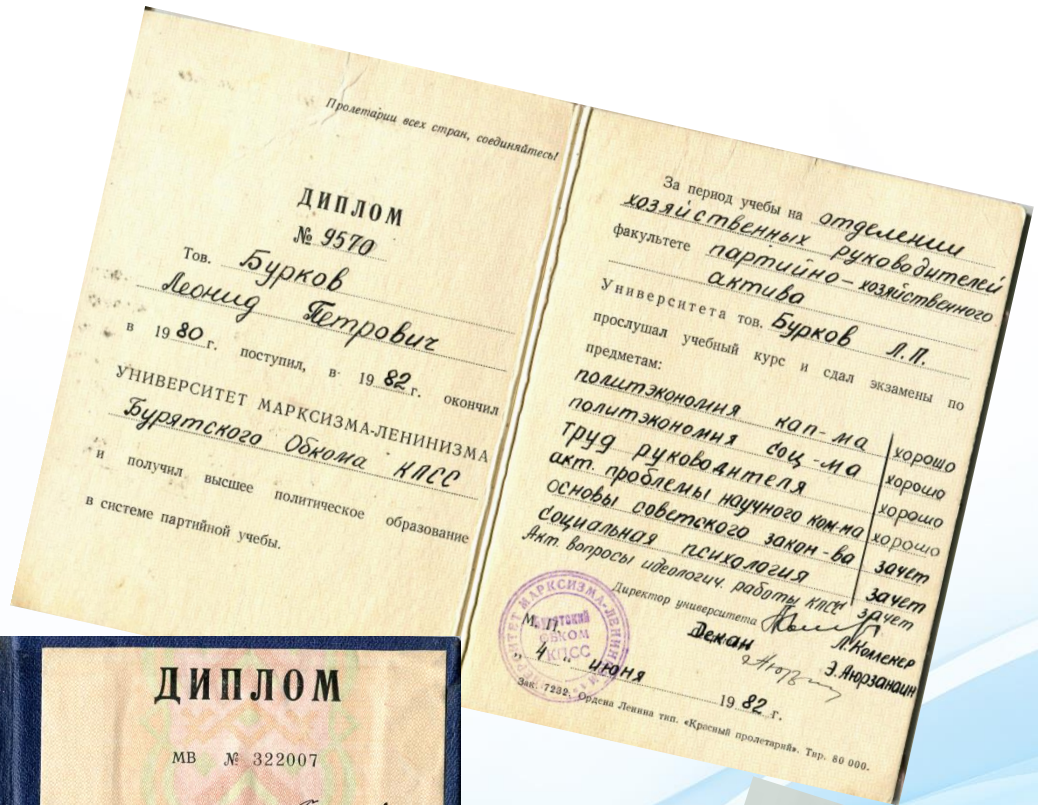 Пролетарии всех стран, соединяйтесь!
ДИПЛОМ
№ 9570
Тов. Бурков
Леонид Петрович
в 1980 г. поступил, в 1982 г. окончил
УНИВЕРСИТЕТ МАРКСИЗМА-ЛЕНИНИЗМА
Бурятского Обкома КПСС
и получил высшее политическое образование
в системе партийной учебы.
За период учебы на отделении
хозяйственных руководителей
факультете партийно-хозяйственного
актива
Университета тов. Бурков Л.П.
прослушал учебный курс и сдал экзамены по
предметам:
политэкономия кап-ма хорошо
политэкономия соц-ма хорошо
труд руководителя хорошо
акт. проблемы научного ком-ма хорошо
основы советского закон-ва зачет
социальная психология зачет
Акт. вопросы идеологич. работы КПСС зачет
Директор университета Л. Колленер
Декан Э. Аюрзанаин
М. П.
БУРЯТСКИЙ
ОБКОМ
КПСС
„4“ июня 1982 г.
Зак. 7232. Ордена Ленина тип. «Красный пролетарий». Тир. 80 000.
ДИПЛОМ
МВ № 322007